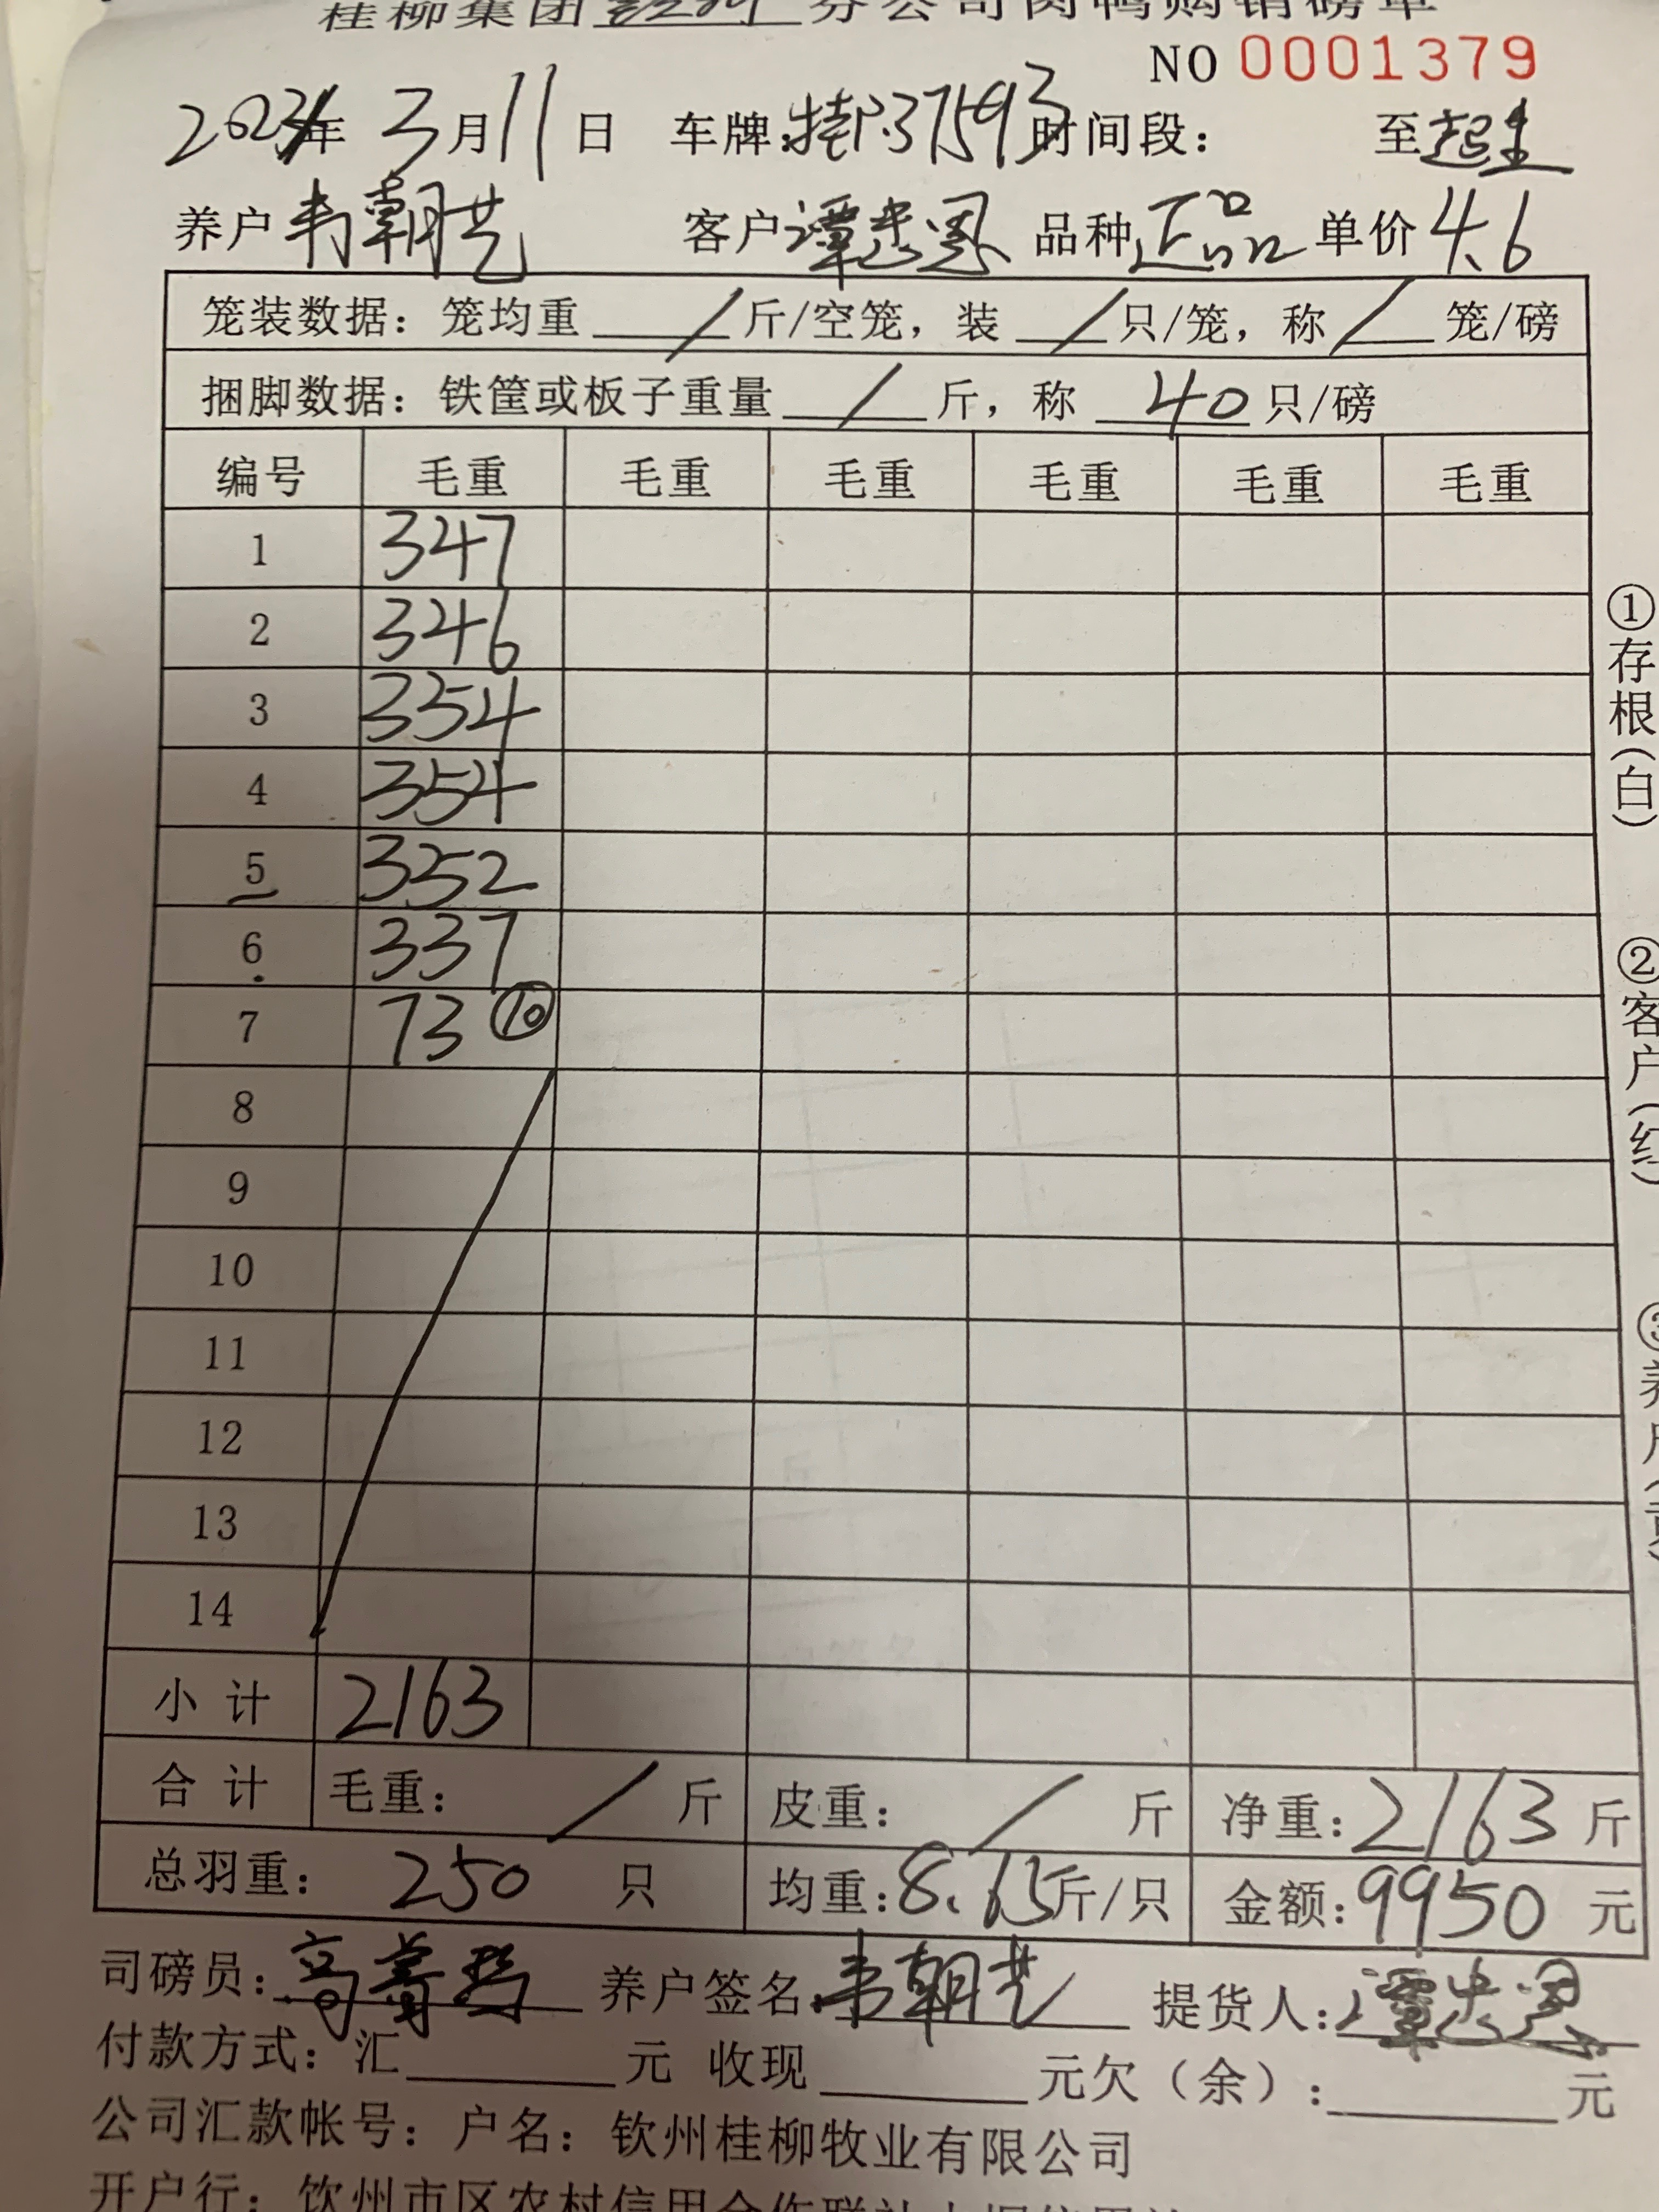 桂柳集团 分公司肉鸭购销磅单
NO 0001379
年 3月11日 车牌:桂P37593 时间段: 至
养户 韦朝艺 客户 谭忠恩 品种 正品 单价 4.6
笼装数据:笼均重 / 斤/空笼,装 / 只/笼,称 / 笼/磅
捆脚数据:铁筐或板子重量 / 斤,称 40 只/磅
编号 毛重 毛重 毛重 毛重 毛重 毛重
1 347
2 346
3 354
4 354
5 352
6 337
7 73 ⑩
8
9
10
11
12
13
14
小计 2163
合计 毛重: / 斤 皮重: / 斤 净重:2163 斤
总羽重: 250 只 均重:8.65斤/只 金额:9950 元
司磅员: 养户签名 韦朝艺 提货人:谭忠恩
付款方式:汇 元 收现 元欠(余): 元
公司汇款帐号:户名:钦州桂柳牧业有限公司
开户行:钦州市区农村信用合作联社
①存根(白)
②客户(红)
③养户